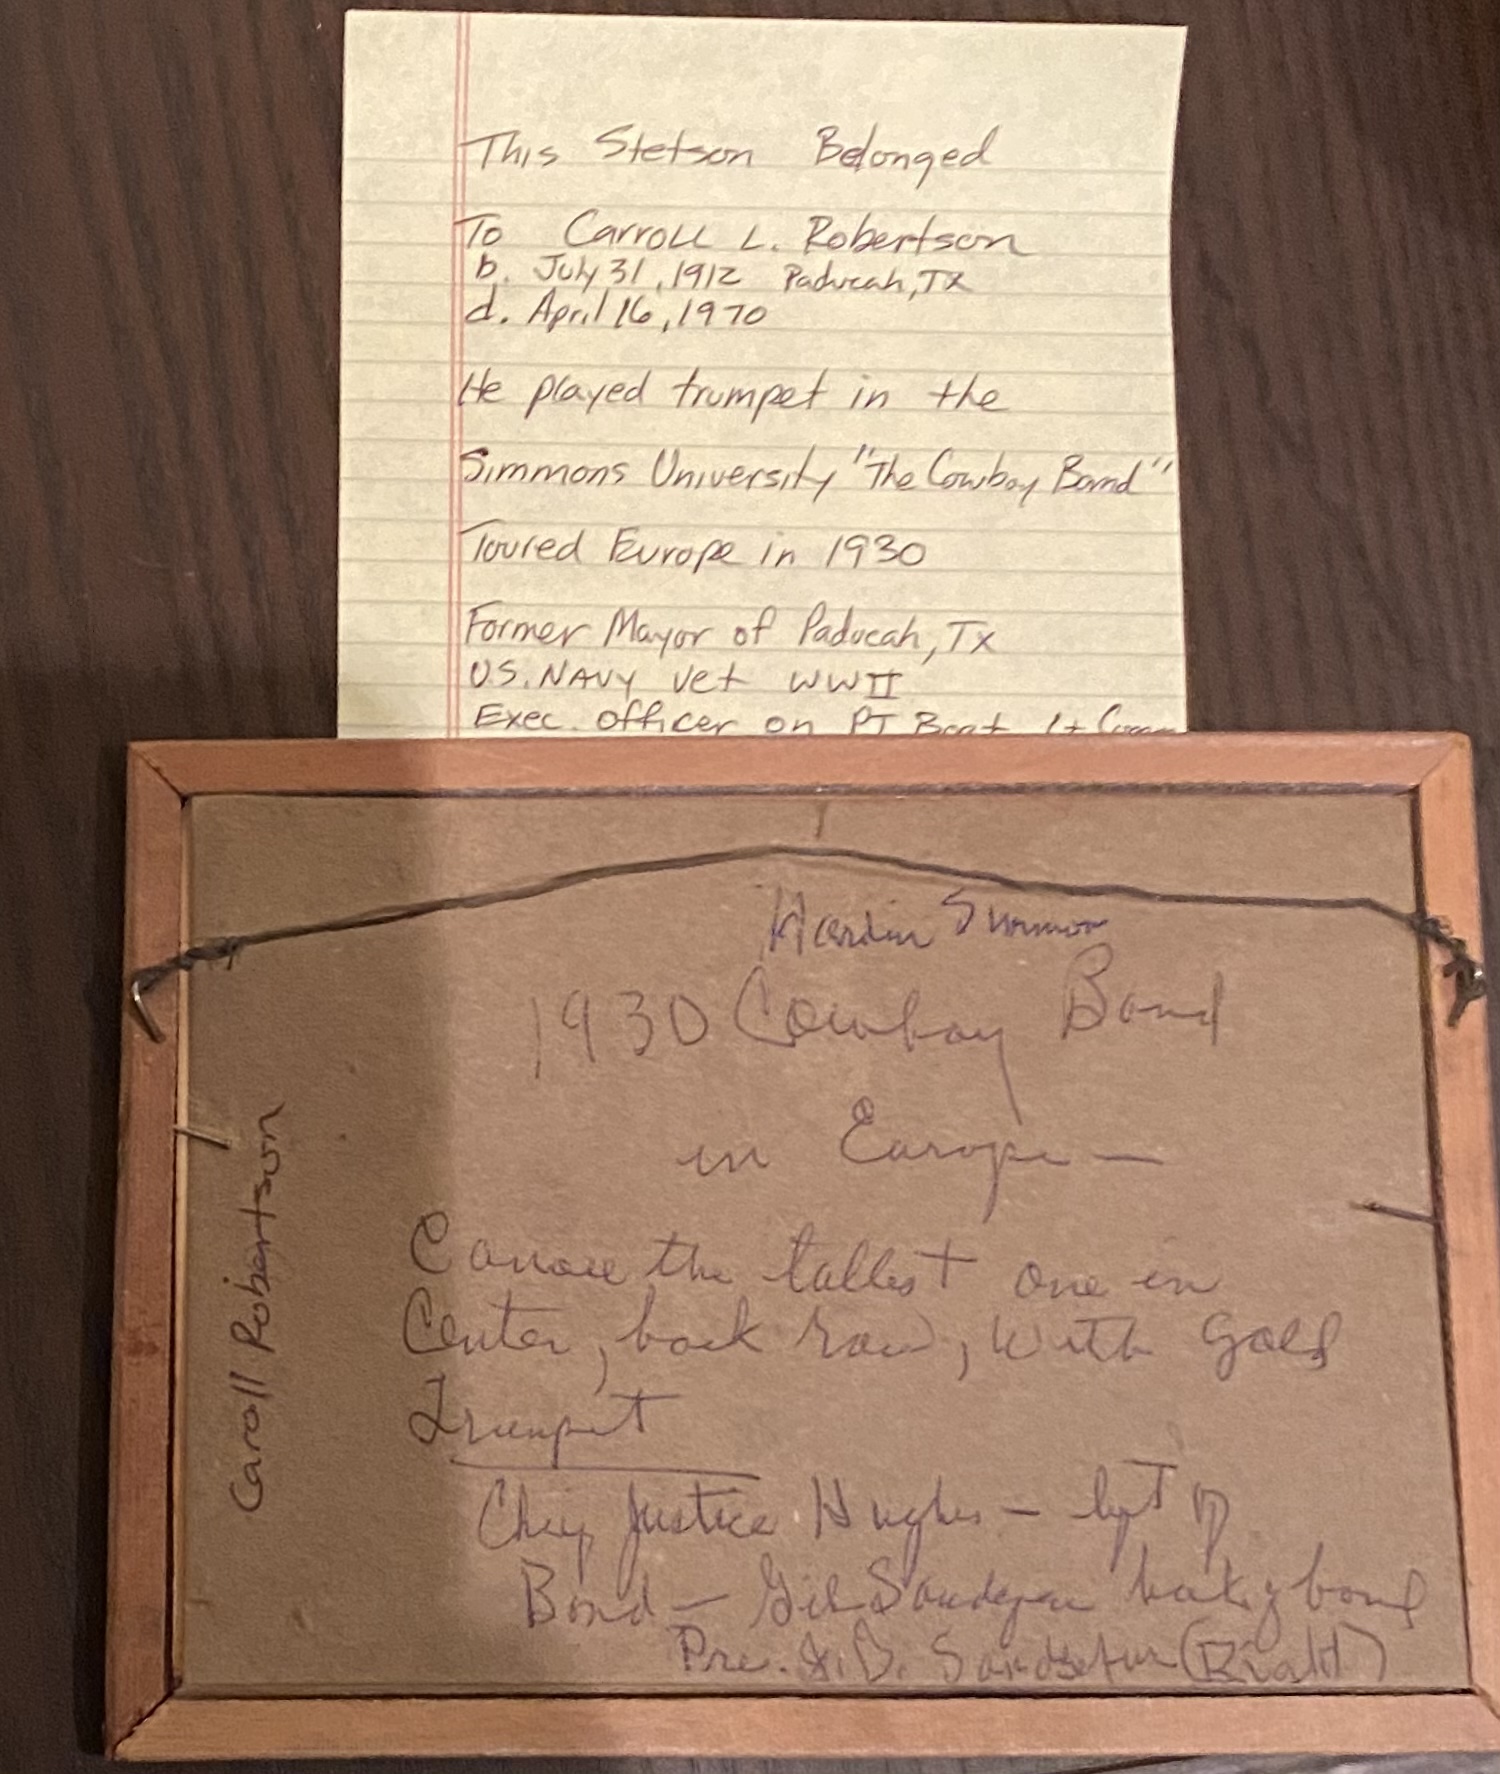 This Stetson Belonged
To Carroll L. Robertson
b. July 31, 1912 Paducah, TX
d. April 16, 1970
He played trumpet in the
Simmons University "The Cowboy Band"
Toured Europe in 1930
Former Mayor of Paducah, Tx
U.S. NAVY vet WWII
Exec. officer on PT Boat Lt Comm
Hardin Simmon
1930 Cowboy Band
in Europe —
the tallest one in
Center, back row, with gold
Trumpet
Chief Justice Hughes — left of
Band — Gib Sandefer back of band
Pre. J. D. Sandefur (Right)
Caroll Robertson